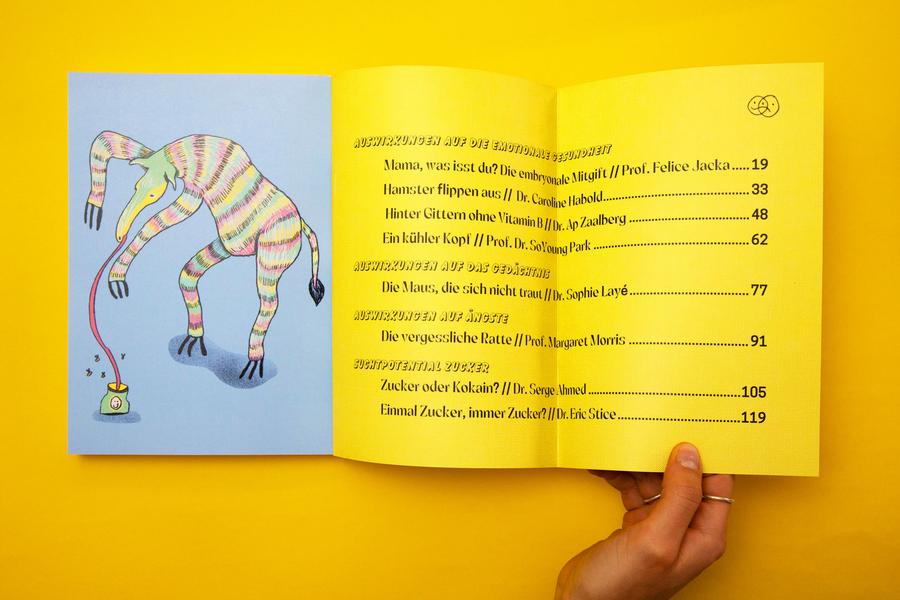 AUSWIRKUNGEN AUF DIE EMOTIONALE GESUNDHEIT
Mama, was isst du? Die embryonale Mitgift // Prof. Felice Jacka.....19
Hamster flippen aus // Dr. Caroline Habold...............................33
Hinter Gittern ohne Vitamin B // Dr. Ap Zaalberg ........................48
Ein kühler Kopf // Prof. Dr. SoYoung Park ................................62
AUSWIRKUNGEN AUF DAS GEDÄCHTNIS
Die Maus, die sich nicht traut // Dr. Sophie Layé........................77
AUSWIRKUNGEN AUF ÄNGSTE
Die vergessliche Ratte // Prof. Margaret Morris ........................91
SUCHTPOTENTIAL ZUCKER
Zucker oder Kokain? // Dr. Serge Ahmed ................................105
Einmal Zucker, immer Zucker? // Dr. Eric Stice..........................119